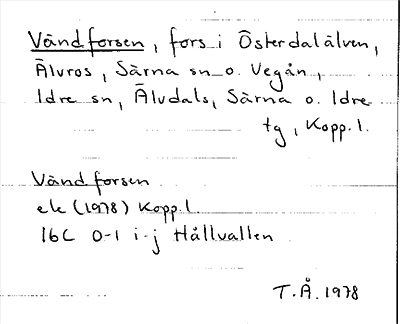 Vändforsen, fors i Österdalälven,
Älvros, Särna sn o. Vegån,
Idre sn, Älvdals, Särna o. Idre
tg, Kopp.l.
Vändforsen
ek (1978) Kopp.l.
16C 0-1 i-j Hållvallen
T.Å. 1978